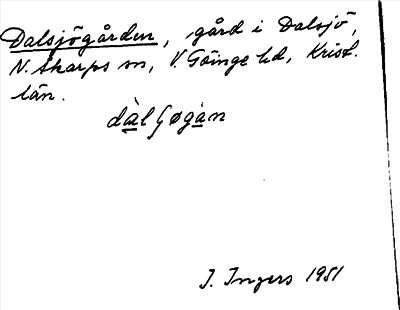 Dalsjögården, gård i Dalsjö,
N. Åkarps sn, V. Göinge hd, Krist.
län.
dàlʃøgàn
I. Ingers 1951